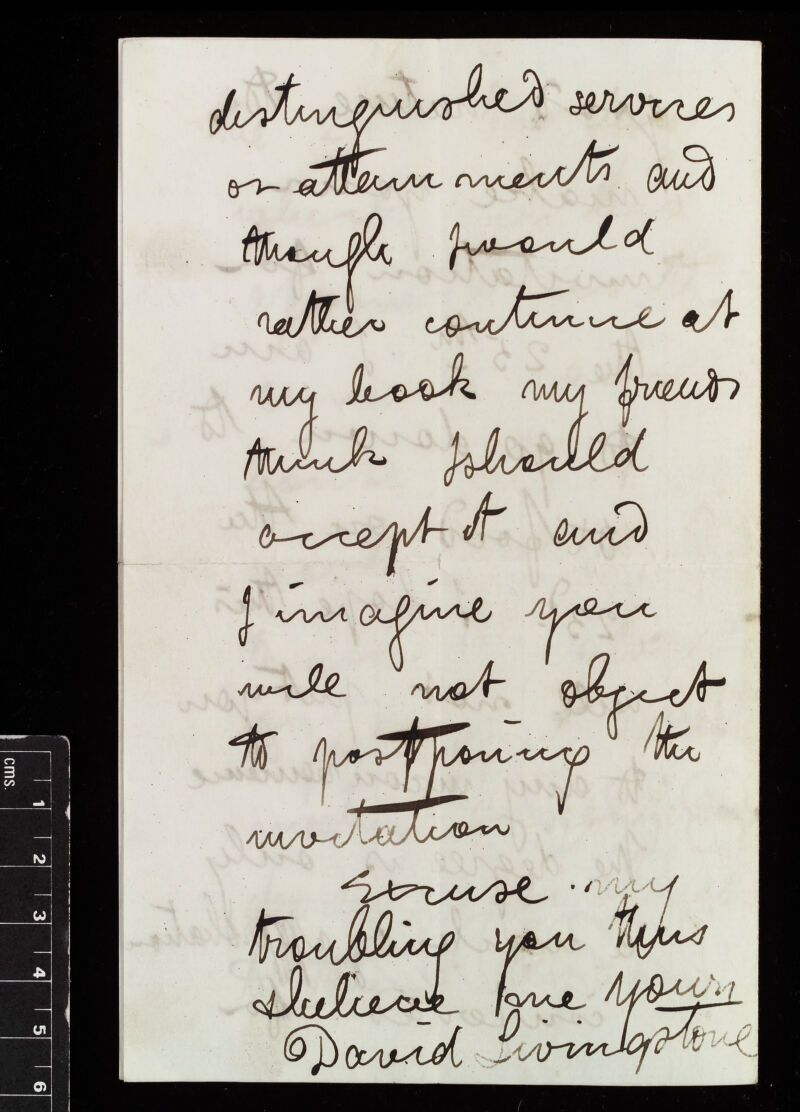 distinguished services
or attainments and
though I would
rather continue at
my book my friends
think I should
accept it and
I imagine you
will not object
to postponing the
invitation
Excuse my
troubling you thus
& believe me yours
David Livingstone
cms.
1
2
3
4
5
6